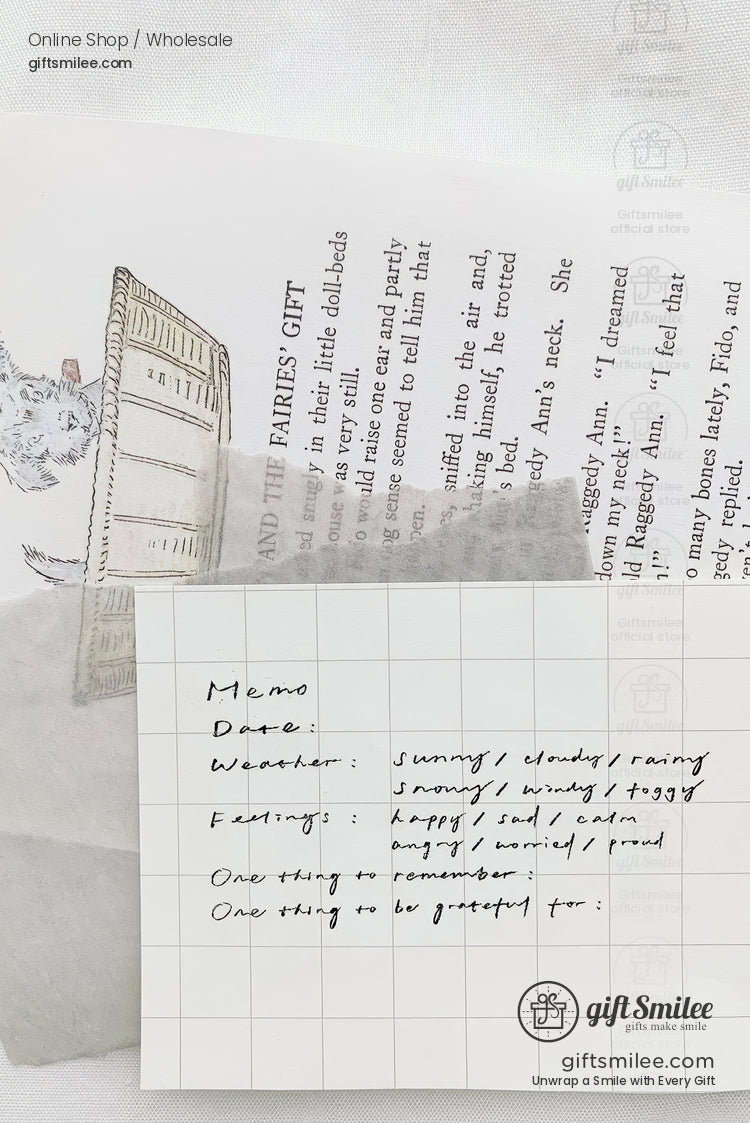 Online Shop / Wholesale
giftsmilee.com
gift Smilee
Giftsmilee
official store
gift Smilee
Giftsmilee
official store
Giftsmilee
official store
gift Smilee
Giftsmilee
official store
gift Smilee
gift Smilee
Giftsmilee
official store
AND THE FAIRIES' GIFT
ed snugly in their little doll-beds
ouse was very still.
o would raise one ear and partly
og sense seemed to tell him that
pen.
sniffed into the air and,
haking himself, he trotted
's bed.
edy Ann's neck. She
Raggedy Ann. “I dreamed
down my neck!”
ld Raggedy Ann. “I feel that
n!”
o many bones lately, Fido, and
gedy replied.
Memo
Date:
Weather: sunny / cloudy / rainy
snowy / windy / foggy
Feelings: happy / sad / calm
angry / worried / proud
One thing to remember:
One thing to be grateful for:
gift Smilee
gifts make smile
giftsmilee.com
Unwrap a Smile with Every Gift